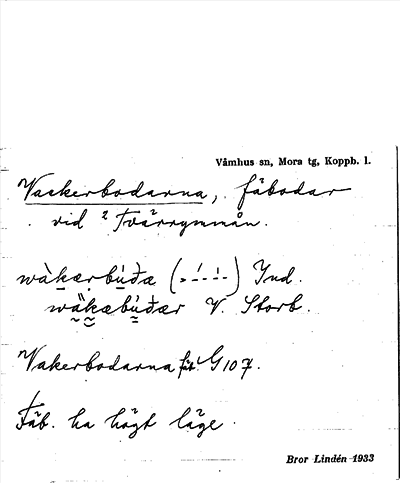 Våmhus sn, Mora tg, Koppb. l.
Vackerbodarna, fäbodar
vid ² Tvärrymmån.
wàkærbúðæ ( ) Ind.
wäkæbúðær V. Storb.
Vakerbodarna G 107.
Fäb. ha högt läge.
Bror Lindén 1933